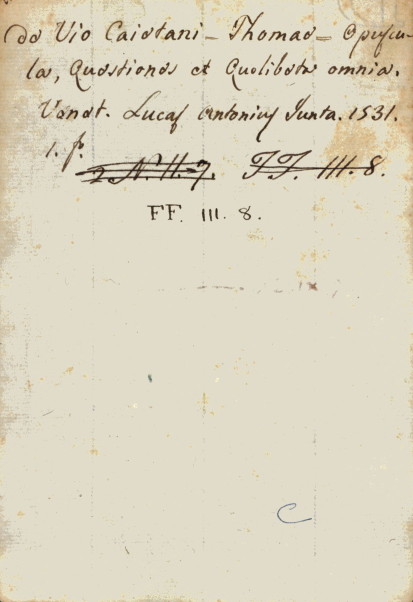 de Vio Caietani = Thomae = Opuscu-
la, Quaestiones et Quolibeta omnia.
Venet. Lucas Antonius Junta. 1531.
1. f.
2 N. II. 7. FF. III. 8.
FF. III. 8.
C